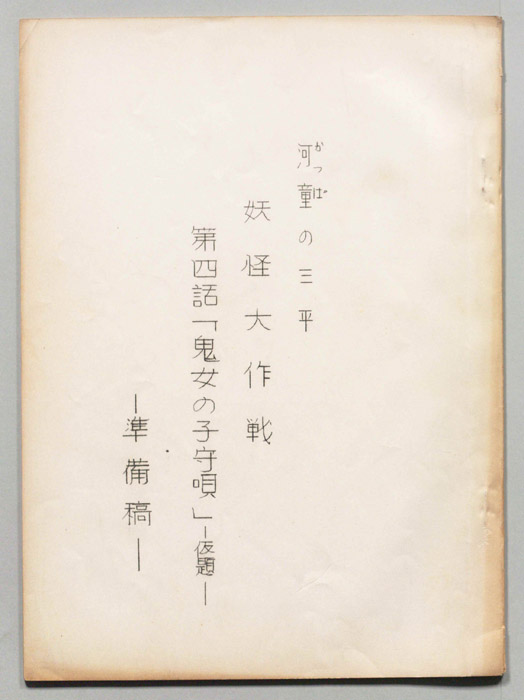 河童の三平
かっぱ
妖怪大作戦
第四話「鬼女の子守唄」―仮題―
―準備稿―